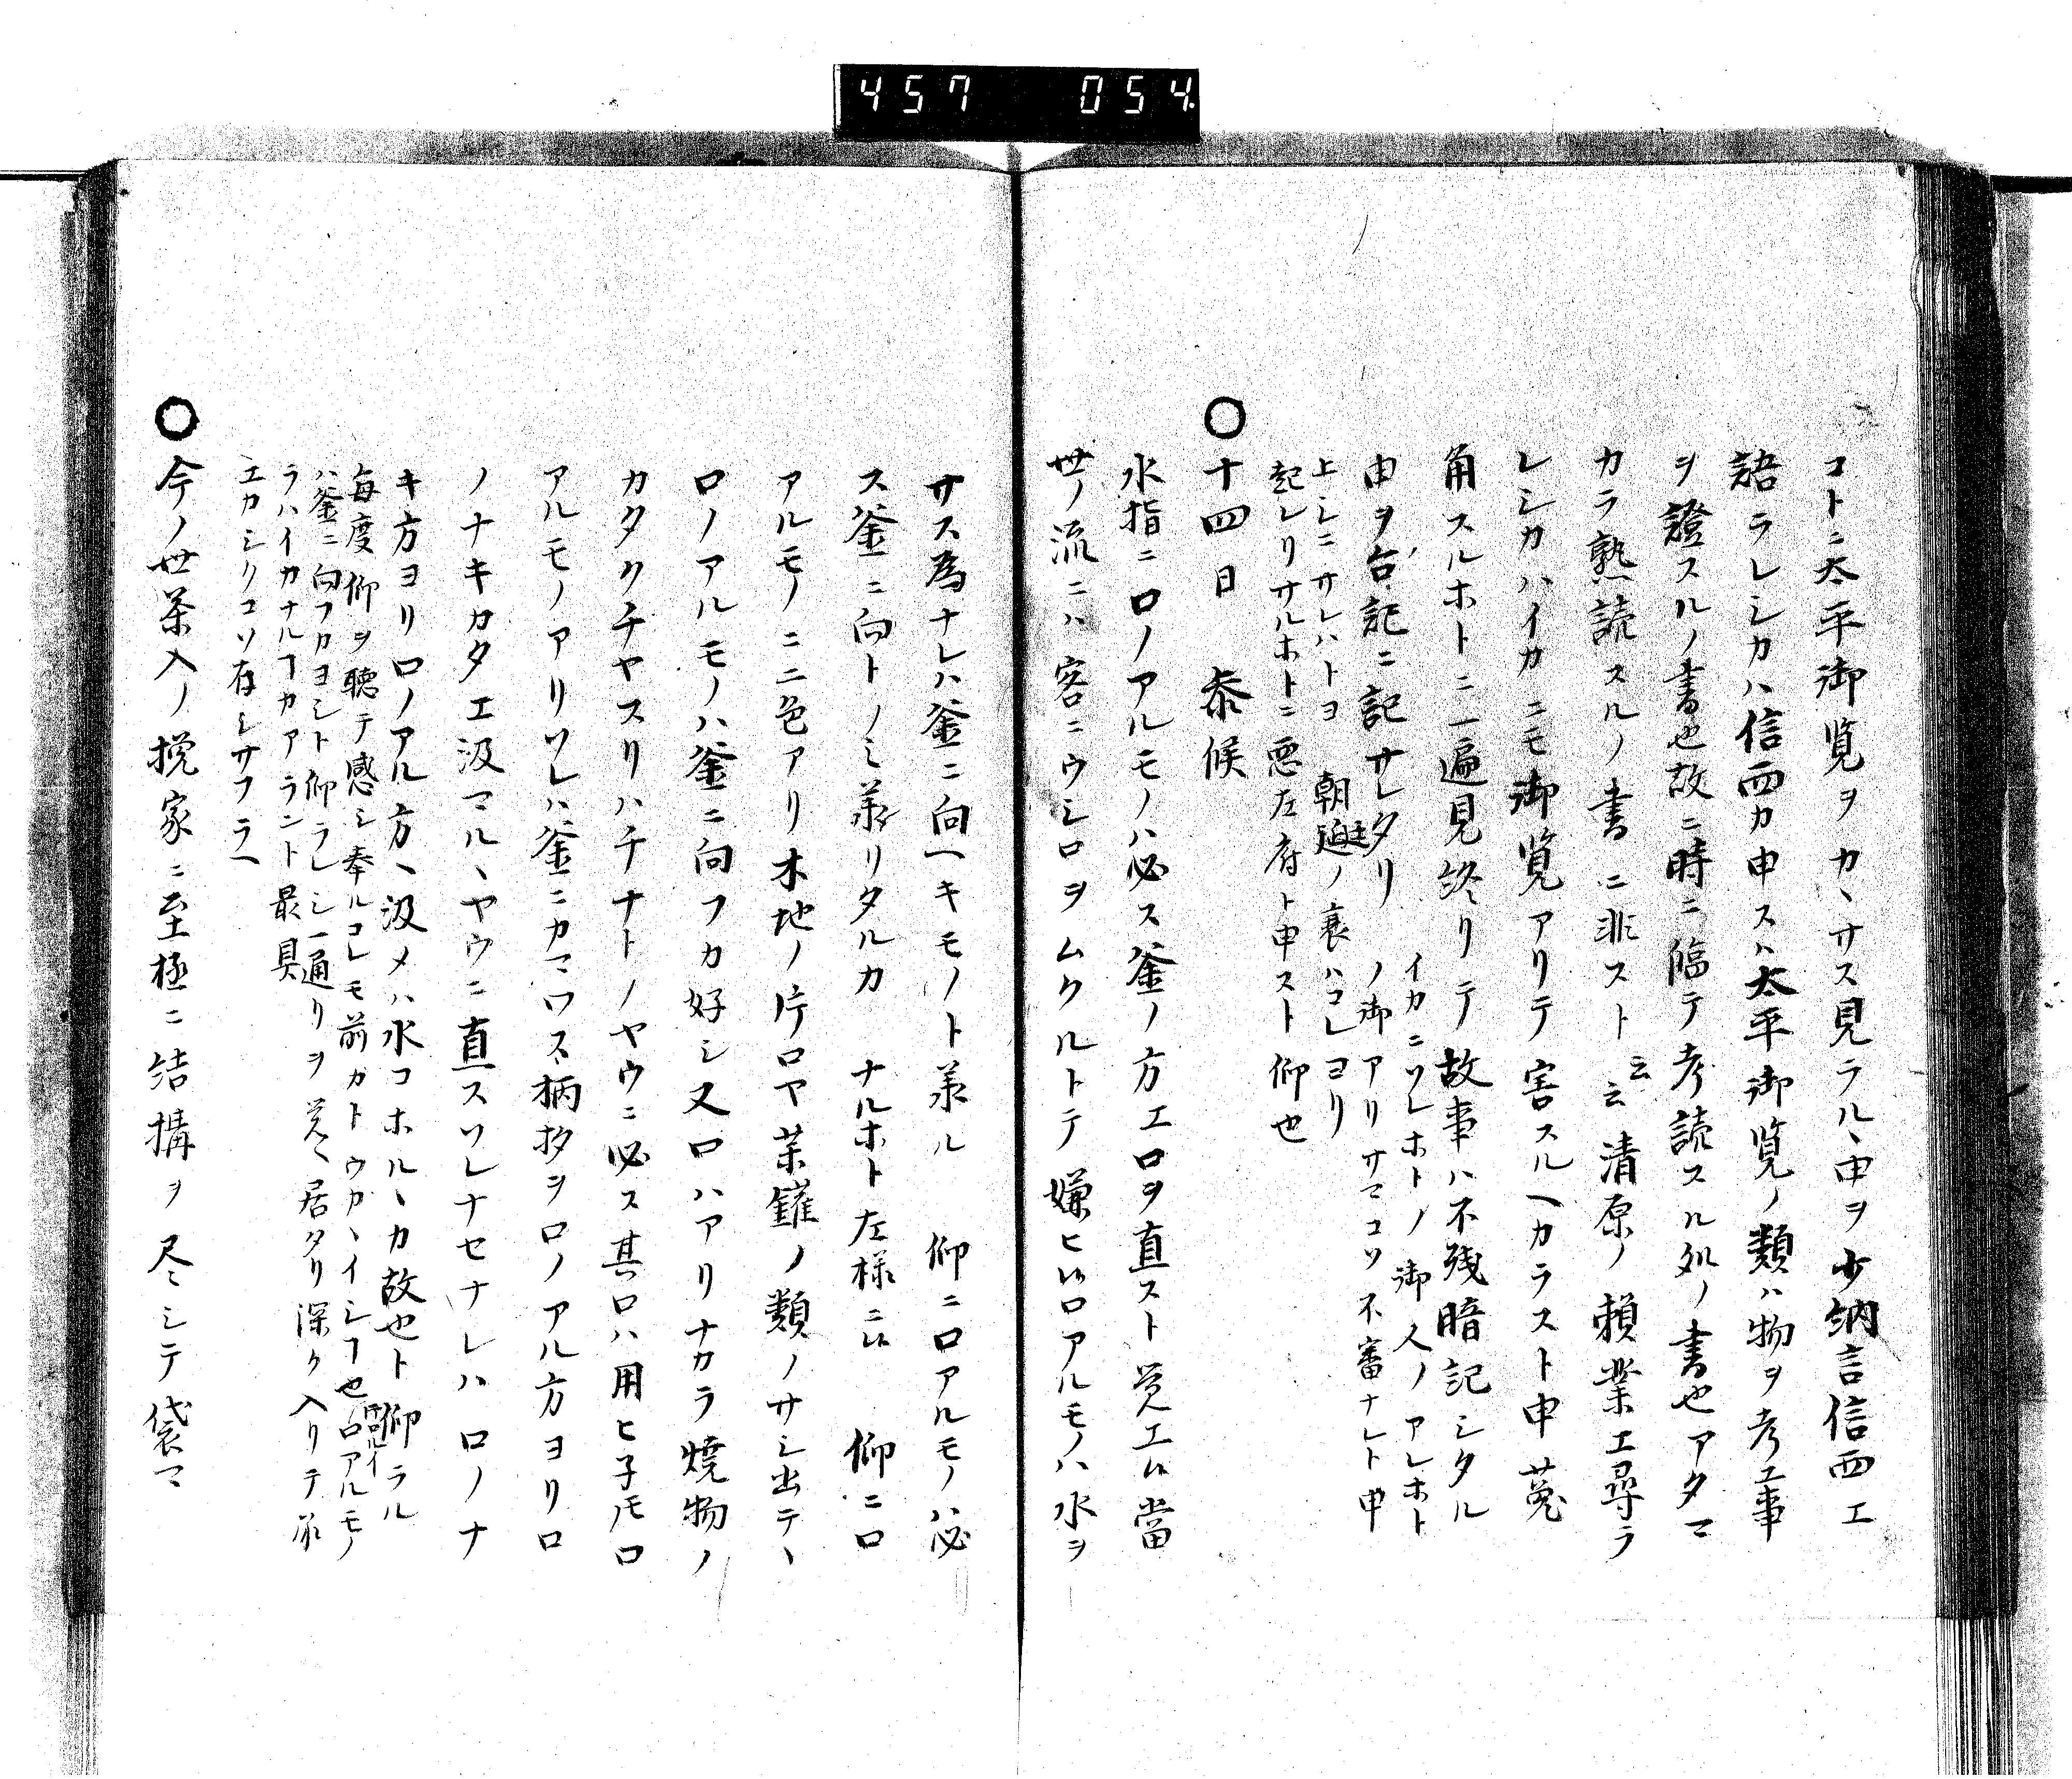 457 054.
コトニ太平御覧ヲカヽサス見ラルヽ由ヲ少納言信西エ
語ラレシカハ信西カ申スハ太平御覧ノ類ハ物ヲ考エ事
ヲ證スルノ書也故ニ時ニ臨テ考読スル処ノ書也アタマ
カラ熟読スルノ書ニ非スト云云清原ノ頼業エ尋ラ
レシカハイカニモ御覧アリテ害スルヘカラスト申莵
角スルホトニ一遍見終リテ故事ハ不残暗記シタル
由ヲ台記ニ記サレタリ
イカニソレホトノ御人ノアレホト
ノ御アリサマコソ不審ナレト申
上シニサレハトヨ 朝廷ノ衰ハコレヨリ
起レリサルホトニ悪左府ト申スト仰也
○十四日 参候
水指ニ口ノアルモノハ必ス釜ノ方エ口ヲ直スト覚エ候當
世ノ流ニハ客ニウシロヲムクルトテ嫌ヒ候口アルモノハ水ヲ
サス為ナレハ釜ニ向ヘキモノト承ル 仰ニ口アルモノハ必
ス釜ニ向トノミ承リタルカ ナルホト左様ニ候 仰ニ口
アルモノニ二色アリ木地ノ片口ヤ茶鑵ノ類ノサシ出テヽ
口ノアルモノハ釜ニ向フカ好シ又口ハアリナカラ焼物ノ
カタクチヤスリハチナトノヤウニ必ス其口ハ用ヒ子モ口
アルモノアリソレハ釜ニカマワス柄杓ヲ口ノアル方ヨリ口
ノナキカタエ汲マルヽヤウニ直スソレナセナレハ口ノナ
キ方ヨリ口ノアル方ヘ汲メハ水コホルヽカ故也ト仰ラル
毎度仰ヲ聴テ感シ奉ルコレモ前カトウカヽイシヿ也口アルモノ
ハ釜ニ向フカヨシト仰ラレシ一通リヲ覚ヘ居タリ深ク入リテ承
ラハイカナルヿカアラント最具
エカシクコソ存シサフラヘ
○今ノ世茶入ノ挽家ニ至極ニ結構ヲ尽シテ袋マ